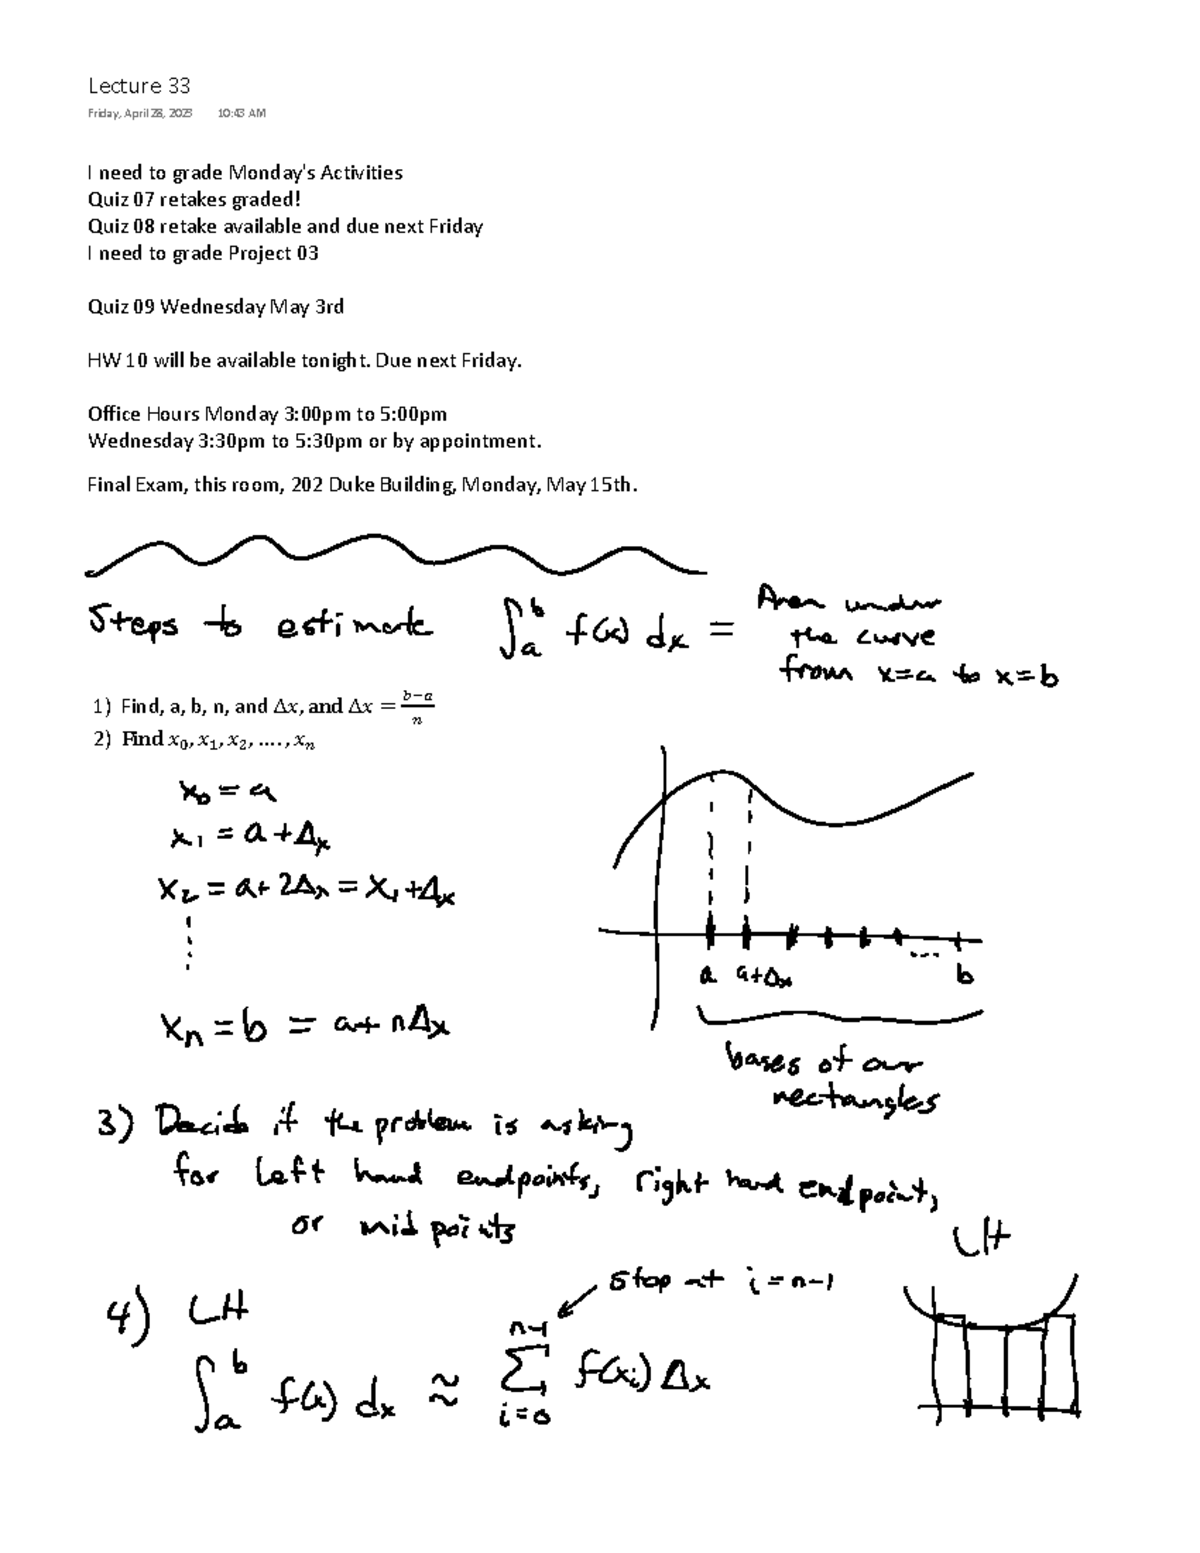 Lecture 33
Friday, April 28, 2023 10:43 AM
I need to grade Monday's Activities
Quiz 07 retakes graded!
Quiz 08 retake available and due next Friday
I need to grade Project 03
Quiz 09 Wednesday May 3rd
HW 10 will be available tonight. Due next Friday.
Office Hours Monday 3:00pm to 5:00pm
Wednesday 3:30pm to 5:30pm or by appointment.
Final Exam, this room, 202 Duke Building, Monday, May 15th.
Steps to estimate ∫_a^b f(x) dx = Area under
the curve
from x=a to x=b
1) Find, a, b, n, and Δx, and Δx = (b−a)/n
2) Find x₀, x₁, x₂, …., xₙ
x₀ = a
x₁ = a + Δx
x₂ = a + 2Δx = x₁ + Δx
xₙ = b = a + nΔx
a a+Δx ... b
bases of our
rectangles
3) Decide if the problem is asking
for left hand endpoints, right hand endpoint,
or midpoints
LH
4) LH
stop at i = n-1
∫_a^b f(x) dx ≈ ∑_{i=0}^{n-1} f(xᵢ) Δx